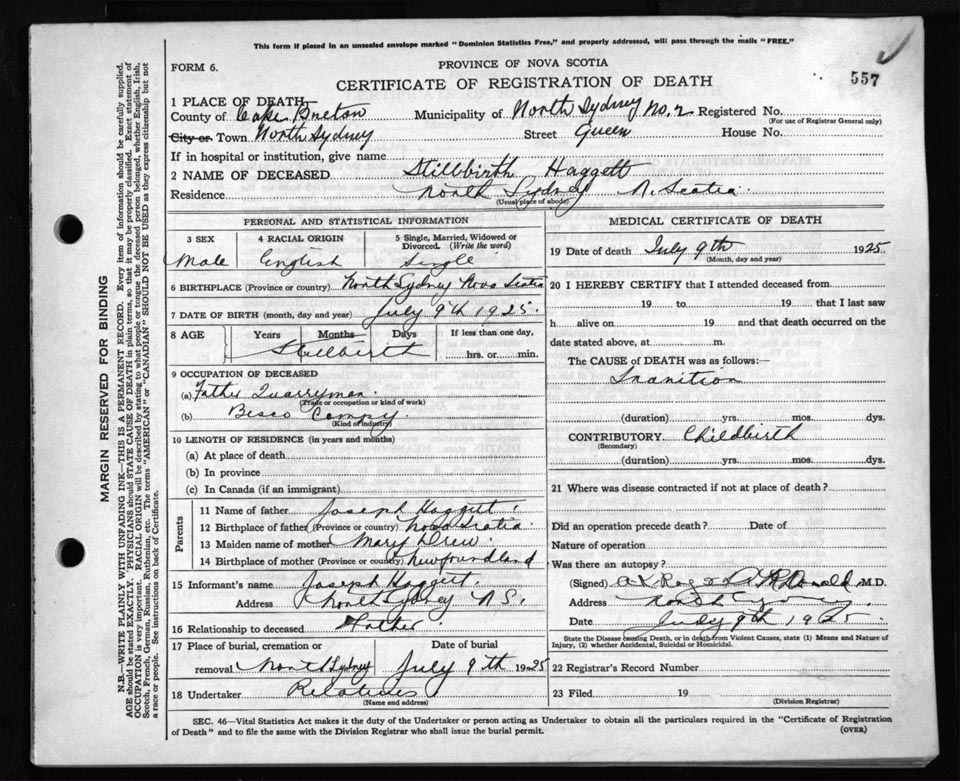 This form if placed in an unsealed envelope marked "Dominion Statistics Free," and properly addressed, will pass through the mails "FREE."
FORM 6.
PROVINCE OF NOVA SCOTIA
557
CERTIFICATE OF REGISTRATION OF DEATH
1 PLACE OF DEATH—
County of Cape Breton Municipality of North Sydney No. 2 Registered No.
(For use of Registrar General only)
City or Town North Sydney Street Queen House No.
If in hospital or institution, give name
2 NAME OF DECEASED Stillbirth Haggett
Residence North Sydney N. Scotia
(Usual place of abode)
PERSONAL AND STATISTICAL INFORMATION
3 SEX 4 RACIAL ORIGIN 5 Single, Married, Widowed or Divorced. (Write the word)
Male English Single
6 BIRTHPLACE (Province or country) North Sydney Nova Scotia
7 DATE OF BIRTH (month, day and year) July 9th 1925
8 AGE Years Months Days If less than one day,
Stillbirth hrs. or min.
9 OCCUPATION OF DECEASED
(a) Father Quarryman
(Trade or occupation or kind of work)
(b) Besco Compy
(Kind of industry)
10 LENGTH OF RESIDENCE (in years and months)
(a) At place of death
(b) In province
(c) In Canada (if an immigrant)
Parents
11 Name of father Joseph Haggett
12 Birthplace of father (Province or country) Nova Scotia
13 Maiden name of mother Mary Drew
14 Birthplace of mother (Province or country) Newfoundland
15 Informant's name Joseph Haggett
Address North Sydney N.S.
16 Relationship to deceased Father
17 Place of burial, cremation or Date of burial
removal North Sydney July 9th 1925
18 Undertaker Relatives
(Name and address)
MEDICAL CERTIFICATE OF DEATH
19 Date of death July 9th 1925
(Month, day and year)
20 I HEREBY CERTIFY that I attended deceased from
19 to 19 that I last saw
h alive on 19 and that death occurred on the
date stated above, at m.
The CAUSE of DEATH was as follows:—
Inanition
(duration) yrs. mos. dys.
CONTRIBUTORY Childbirth
(Secondary)
(duration) yrs. mos. dys.
21 Where was disease contracted if not at place of death?
Did an operation precede death? Date of
Nature of operation
Was there an autopsy?
(Signed) M.D.
Address North Sydney
Date July 9th 1925
State the Disease causing Death, or in death from Violent Causes, state (1) Means and Nature of
Injury, (2) whether Accidental, Suicidal or Homicidal.
22 Registrar's Record Number
23 Filed 19
(Division Registrar)
SEC. 46—Vital Statistics Act makes it the duty of the Undertaker or person acting as Undertaker to obtain all the particulars required in the "Certificate of Registration
of Death" and to file the same with the Division Registrar who shall issue the burial permit.
(OVER)
MARGIN RESERVED FOR BINDING
N.B.—WRITE PLAINLY WITH UNFADING INK—THIS IS A PERMANENT RECORD. Every item of information should be carefully supplied.
AGE should be stated EXACTLY. PHYSICIANS should STATE CAUSE OF DEATH in plain terms, so that it may be properly classified. Exact statement of
OCCUPATION is very important. RACIAL ORIGIN will be described by stating to what people or tongue the deceased person belonged, whether English, Irish,
Scotch, French, German, Russian, Ruthenian, etc. The terms "AMERICAN" or "CANADIAN" SHOULD NOT BE USED as they express citizenship but not
a race or people. See instructions on back of Certificate.